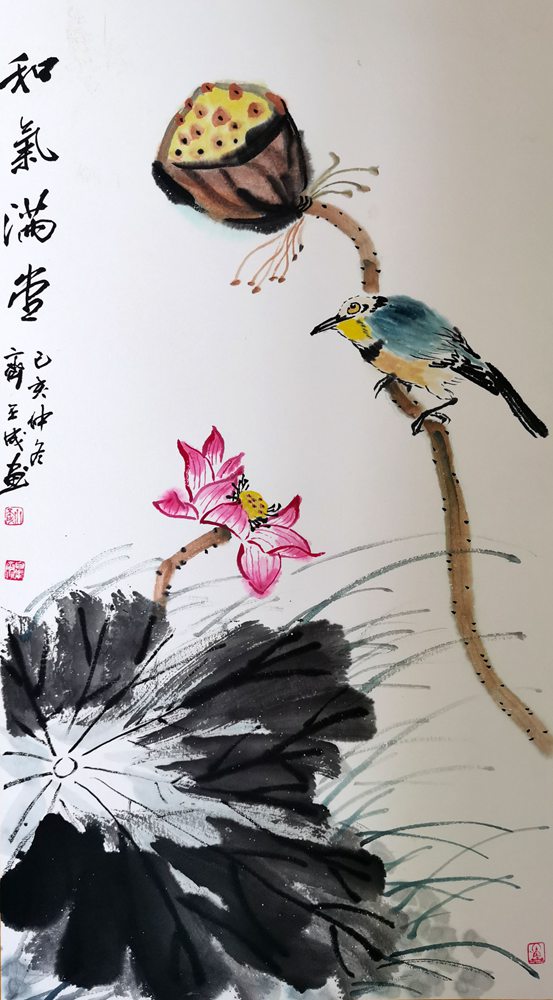 和氣滿堂
己亥仲冬
齊玉成畫